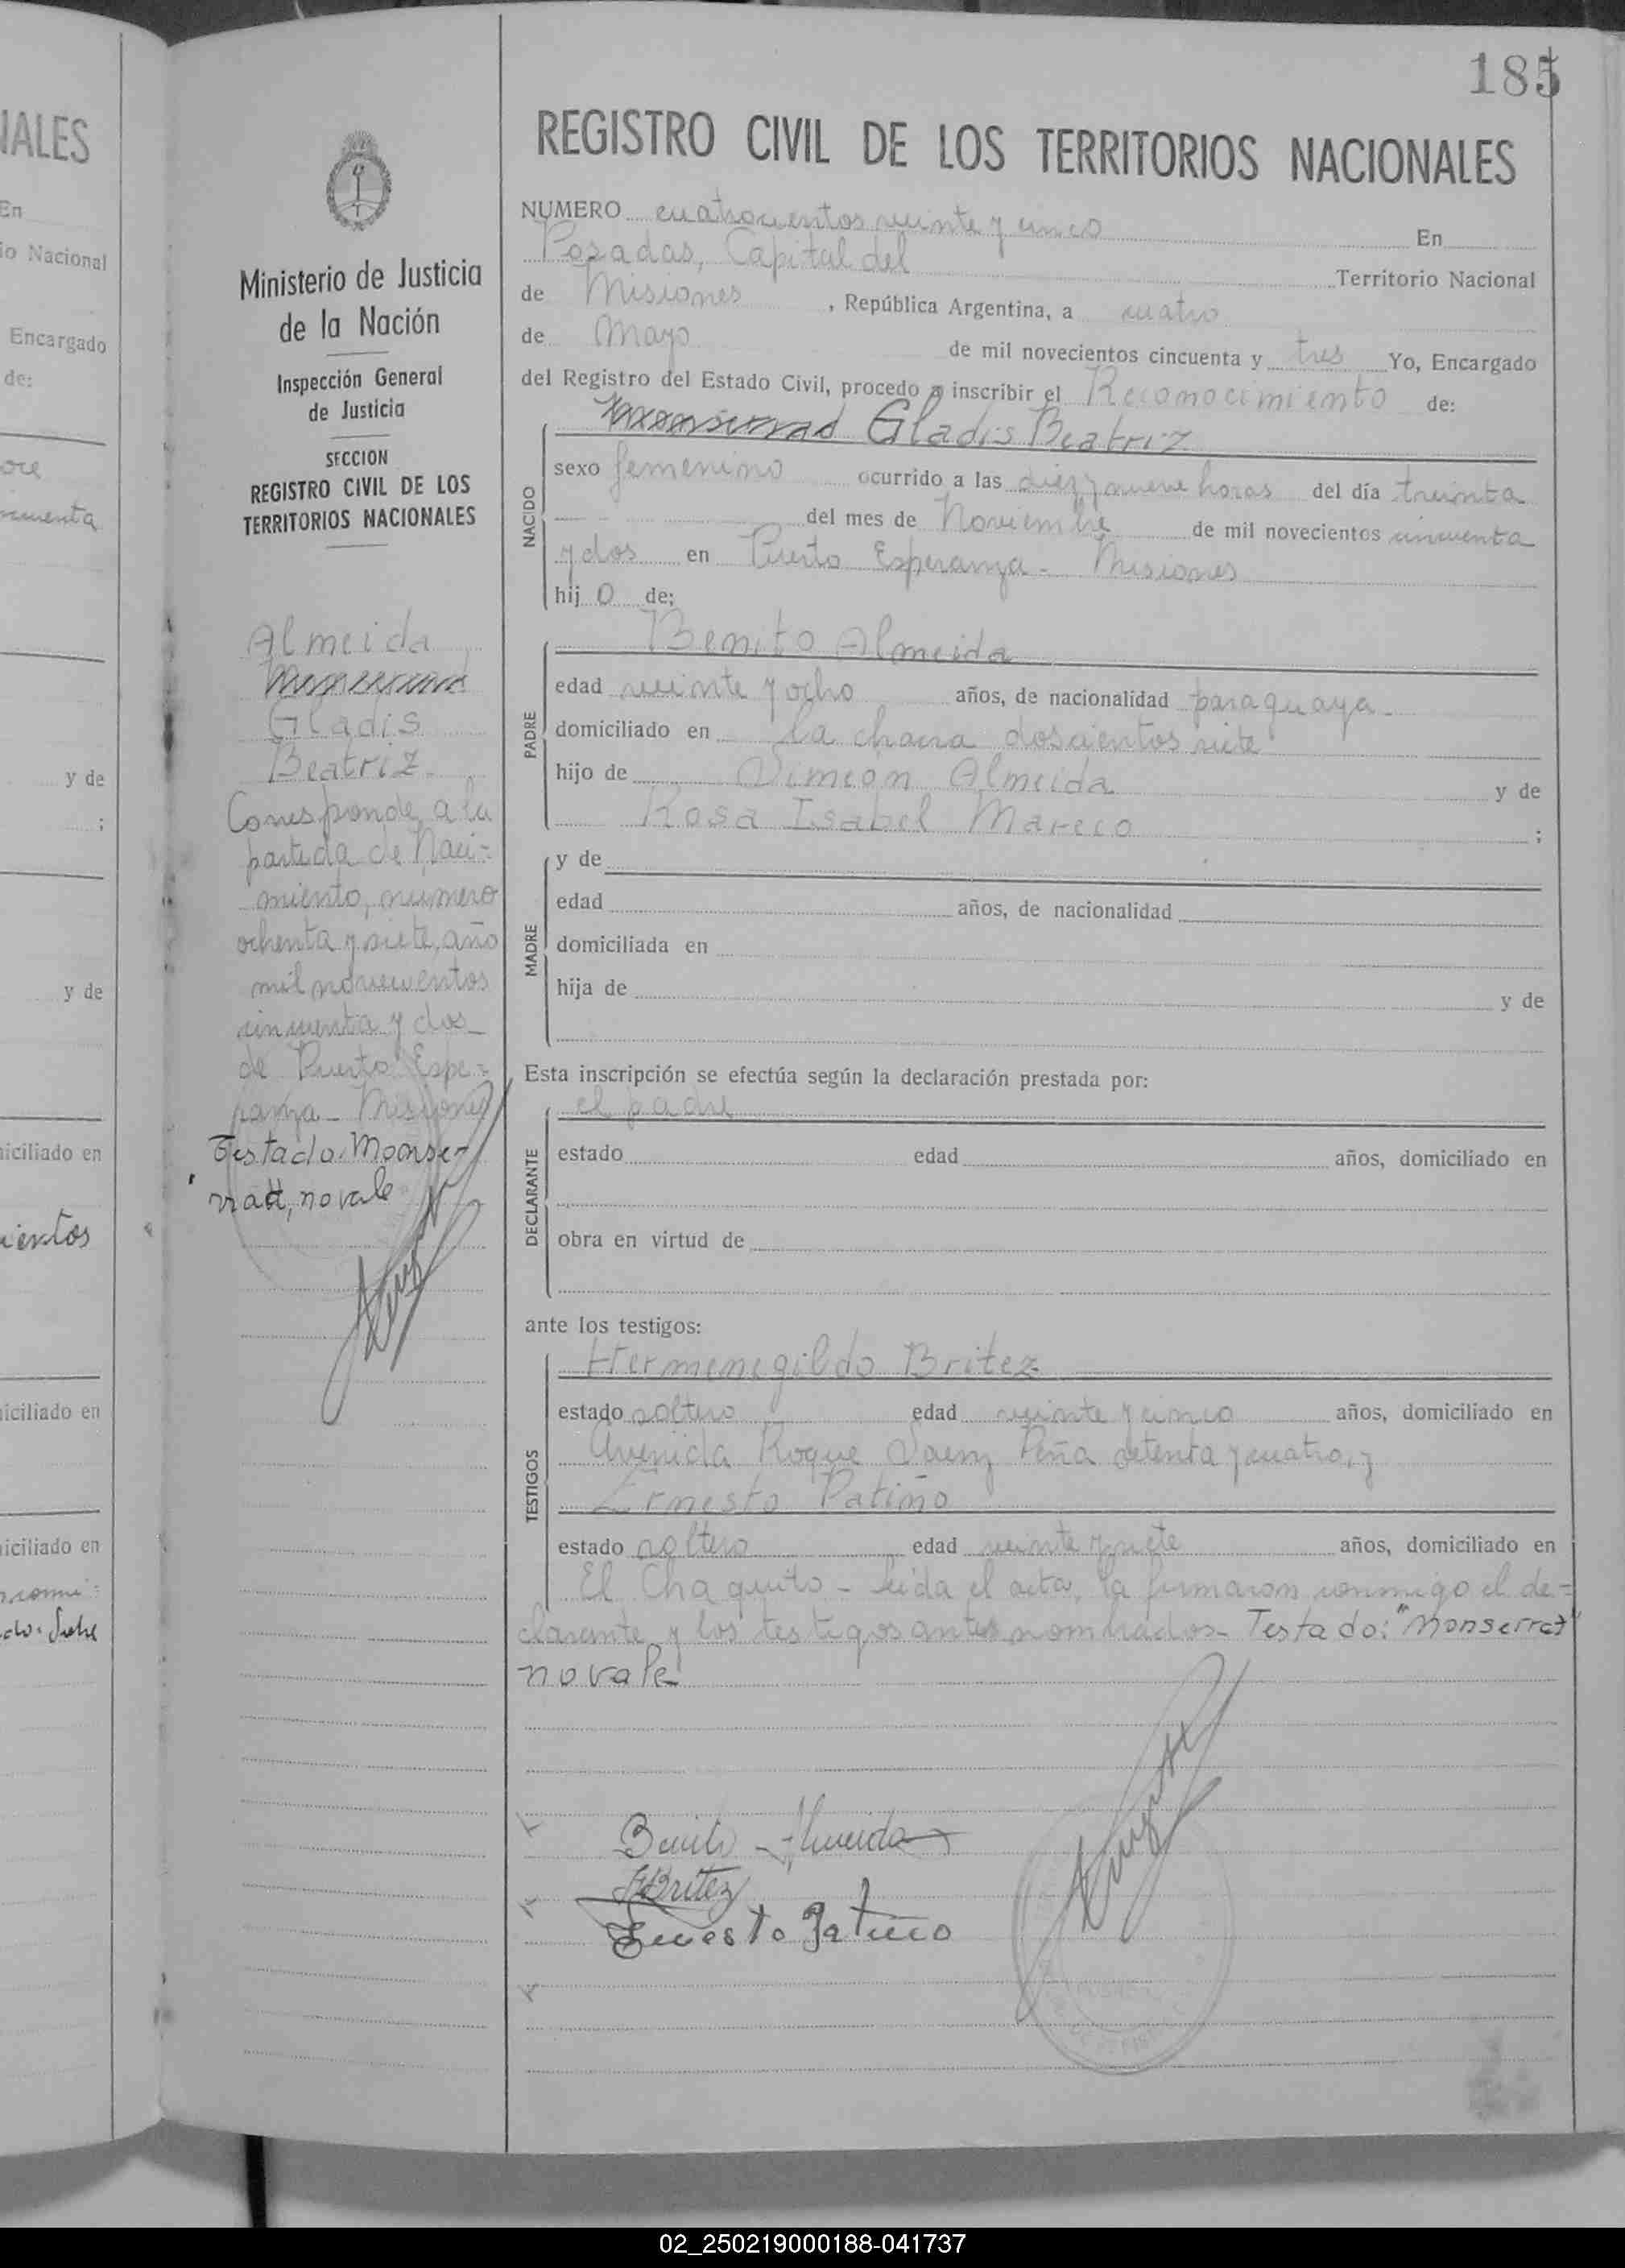 185
REGISTRO CIVIL DE LOS TERRITORIOS NACIONALES
NUMERO cuatrocientos veinte y cinco En
Posadas, Capital del Territorio Nacional
de Misiones, República Argentina, a cuatro
de Mayo de mil novecientos cincuenta y tres Yo, Encargado
del Registro del Estado Civil, procedo a inscribir el Reconocimiento de:
Gladis Beatriz
NACIDO
sexo femenino ocurrido a las diez y nueve horas del día treinta
del mes de Noviembre de mil novecientos cincuenta
y dos en Puerto Esperanza - Misiones
hij o de;
PADRE
Benito Almeida
edad veinte y ocho años, de nacionalidad paraguaya -
domiciliado en la chacra doscientos siete
hijo de Simeón Almeida y de
Rosa Isabel Mareco ;
MADRE
y de
edad años, de nacionalidad
domiciliada en
hija de y de
Esta inscripción se efectúa según la declaración prestada por:
DECLARANTE
el padre
estado edad años, domiciliado en
obra en virtud de
ante los testigos:
TESTIGOS
Hermenegildo Britez
estado soltero edad veinte y cinco años, domiciliado en
Avenida Roque Saenz Peña setenta y cuatro, y
Ernesto Patiño
estado soltero edad veinte y siete años, domiciliado en
El Chaquito - Leida el acta, la firmaron conmigo el de=
clarante y los testigos antes nombrados - Testado: "Monserrat"
no vale
Benito Almeida
HBritez
Ernesto Patiño
Ministerio de Justicia
de la Nación
Inspección General
de Justicia
SECCION
REGISTRO CIVIL DE LOS
TERRITORIOS NACIONALES
Almeida
Gladis
Beatriz -
Corresponde a la
partida de Naci=
miento, numero
ochenta y siete, año
mil novecientos
cincuenta y dos -
de Puerto Espe=
ranza - Misiones
Testado: Monser-
rat, no vale
NALES
En
io Nacional
Encargado
de:
y de
;
y de
iciliado en
iciliado en
iciliado en
02_250219000188-041737